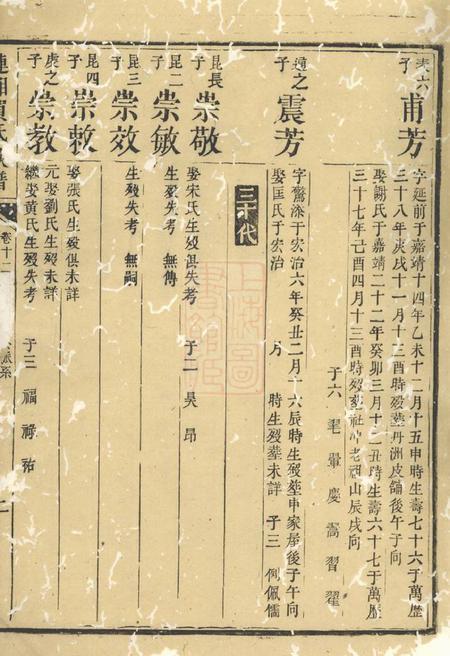 夫六子 甫芳
字延前于嘉靖十四年乙未十二月十五申時生壽七十六于萬歷
三十八年庚戌十一月十三酉時歿葬丹洲皮鋪後午子向
娶謝氏于嘉靖二十二年癸卯三月十二丑時生壽六十七于萬歷
三十七年己酉四月十三酉時歿葬社冲老祖山辰戌向
于六 毛暈慶嵩習翟
遠之子 震芳
字驚漆于宏治六年癸丑二月十六辰時生歿葬申家屋後子午向
娶匡氏于宏治 月 時生歿葬未詳 子三 佩儒
三十代
昆長子 崇敬
娶宋氏生歿俱失考 于二 昊昂
昆二子 崇敏
生歿失考 無傳
昆三子 崇效
生歿失考 無嗣
昆四子 崇敕
娶張氏生歿俱未詳
庚之子 崇教
元娶劉氏生歿未詳
繼娶黃氏生歿失考 于三 福祿祐
卷十二